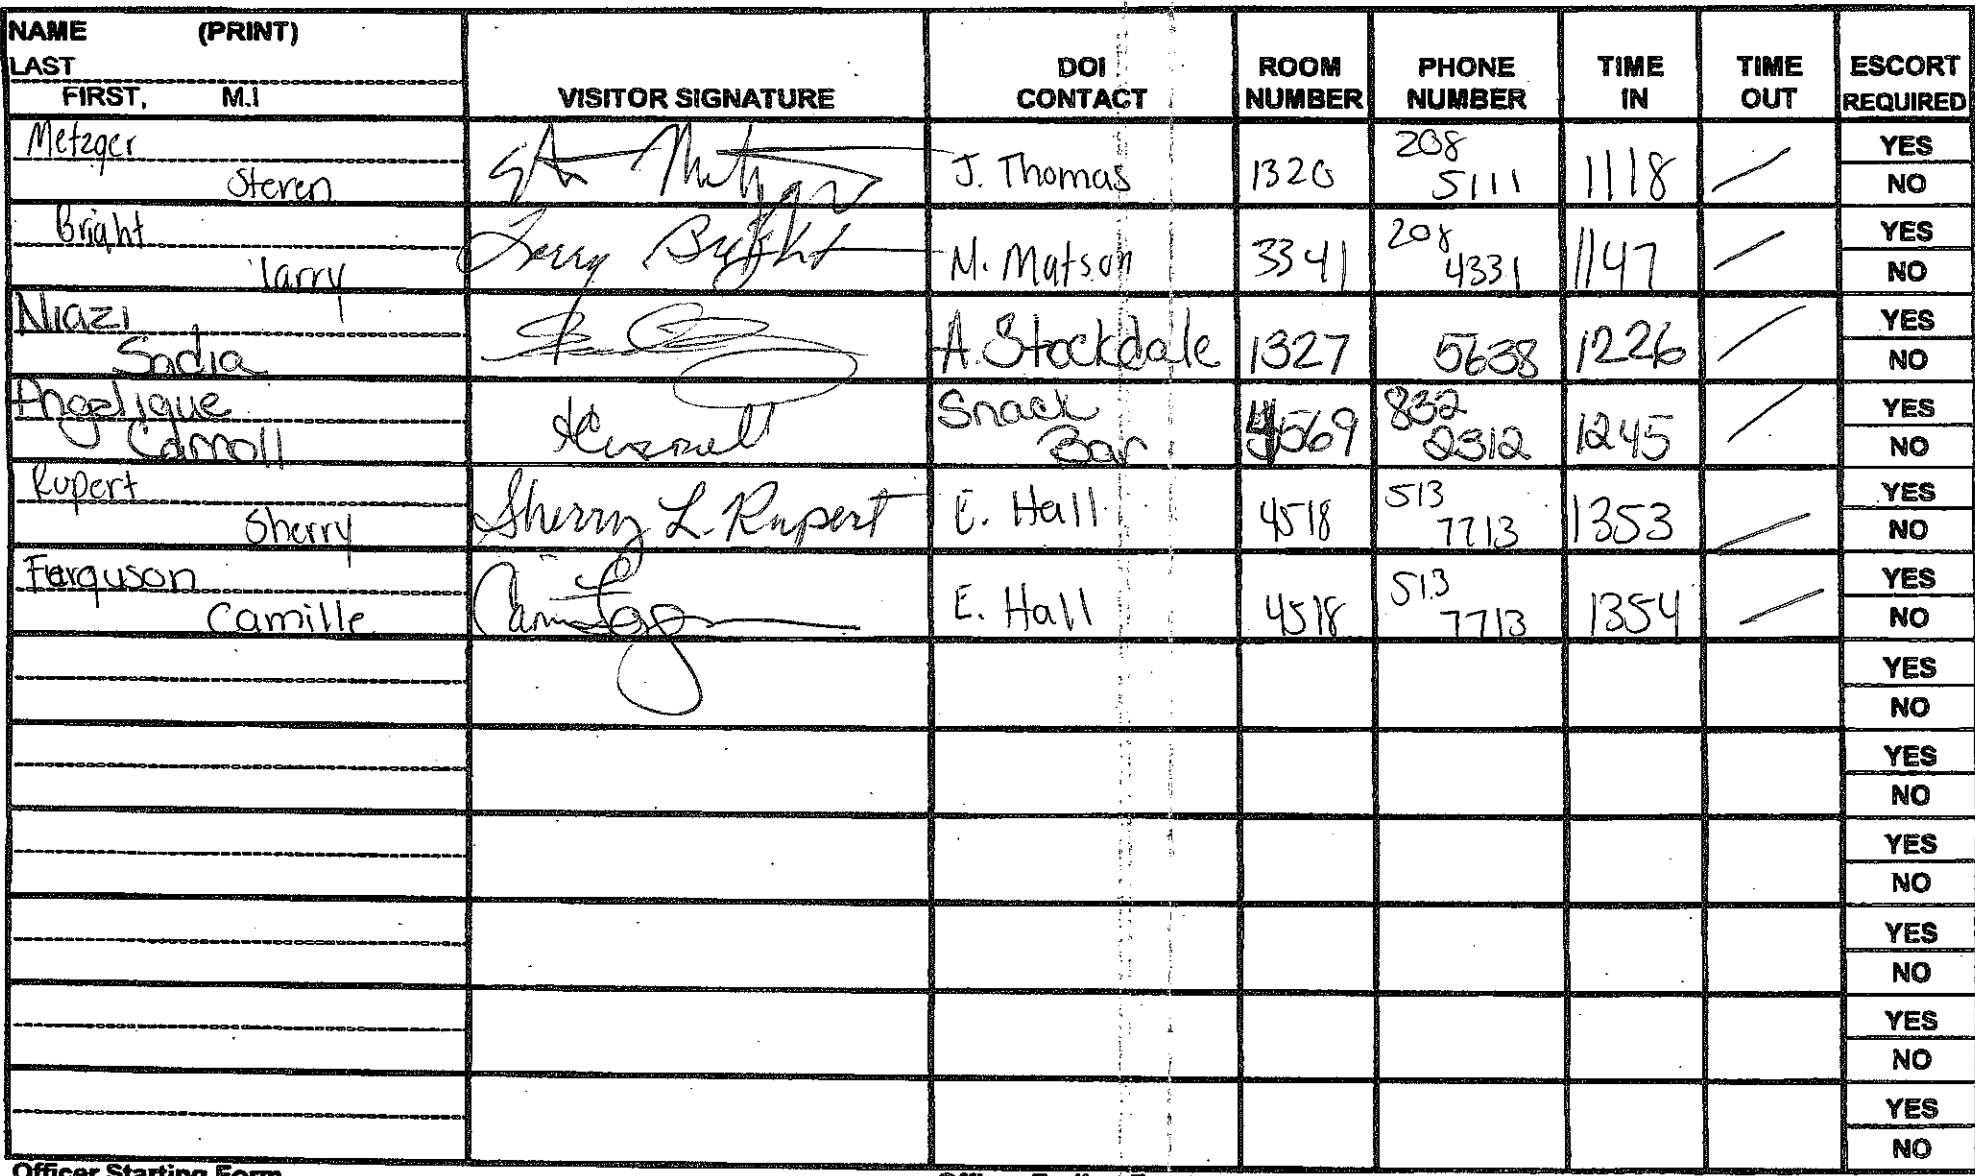 NAME (PRINT)
LAST
FIRST, M.I
VISITOR SIGNATURE
DOI
CONTACT
ROOM
NUMBER
PHONE
NUMBER
TIME
IN
TIME
OUT
ESCORT
REQUIRED
Metzger
Steven
J. Thomas
1320
208
5111
1118
YES
NO
Bright
larry
Larry Bright
M. Matson
3341
208
4331
1147
YES
NO
Niazi
Sadia
A. Stockdale
1327
5638
1226
YES
NO
Angelique
Carroll
Snack
Bar
4569
832
2312
1245
YES
NO
Rupert
Sherry
Sherry L. Rupert
E. Hall
4518
513
7713
1353
YES
NO
Ferguson
Camille
E. Hall
4518
513
7713
1354
YES
NO
YES
NO
YES
NO
YES
NO
YES
NO
YES
NO
YES
NO
Officer Starting Form